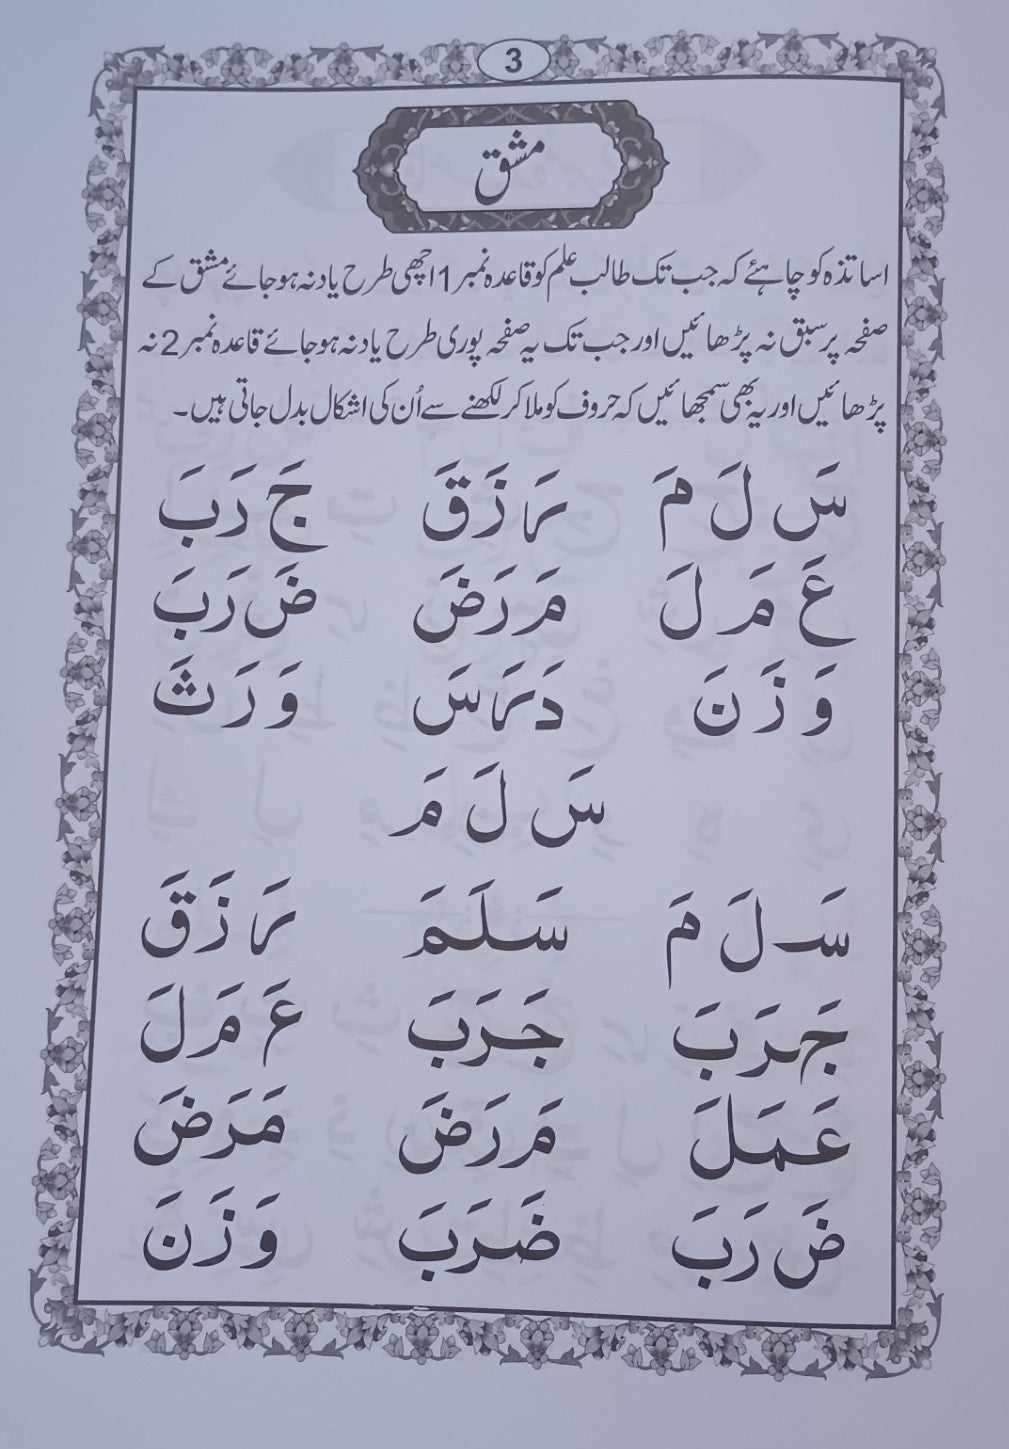 3
مشق
اساتذہ کو چاہئے کہ جب تک طالب علم کو قاعدہ نمبر 1 اچھی طرح یاد نہ ہو جائے مشق کے
صفحہ پر سبق نہ پڑھائیں اور جب تک یہ صفحہ پوری طرح یاد نہ ہو جائے قاعدہ نمبر 2 نہ
پڑھائیں اور یہ بھی سمجھائیں کہ حروف کو ملا کر لکھنے سے اُن کی اشکال بدل جاتی ہیں۔
سَ لَ مَ رَ زَ قَ جَ رَ بَ
عَ مَ لَ مَ رَ ضَ ضَ رَ بَ
وَ زَ نَ دَ رَ سَ وَ رَ ثَ
سَ لَ مَ
سَـ لَ مَ سَلَمَ رَ زَ قَ
جَـرَ بَ جَرَبَ عَ مَ لَ
عَمَلَ مَ رَ ضَ مَرَضَ
ضَ رَ بَ ضَرَبَ وَ زَ نَ